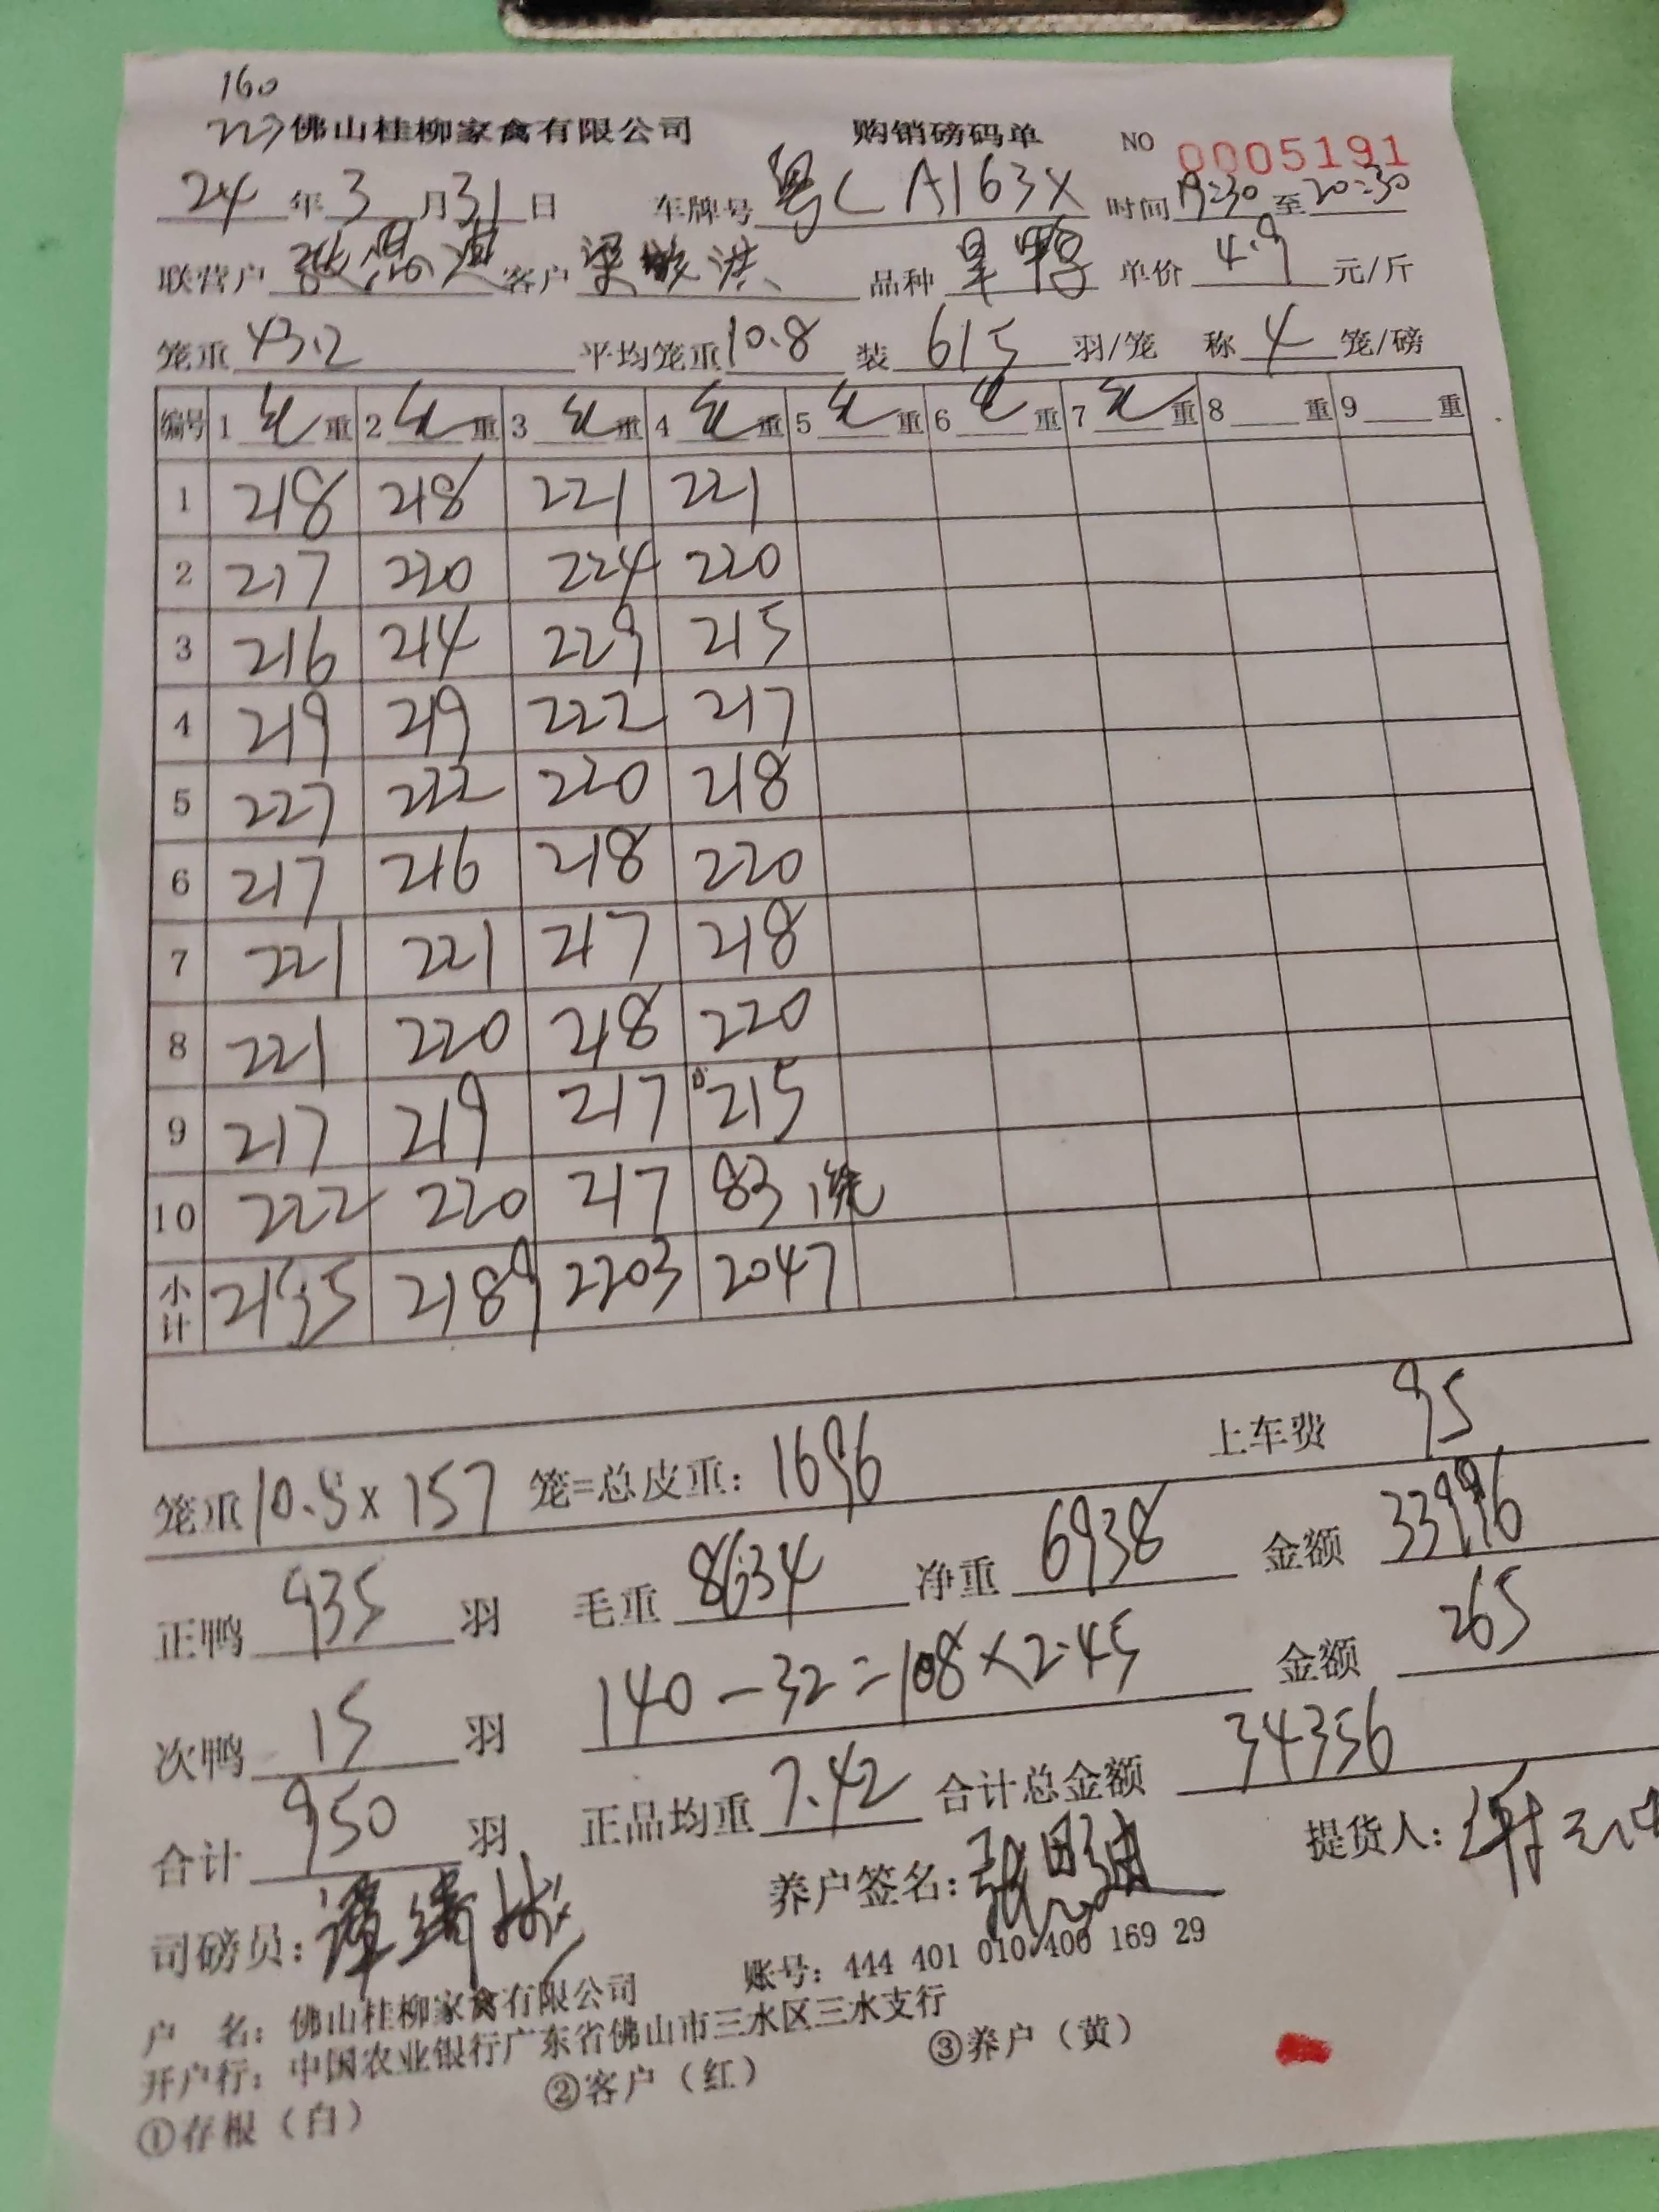 160
223 佛山桂柳家禽有限公司 购销磅码单 NO 0005191
24 年 3 月 31 日 车牌号 粤C A163X 时间 19:30 至 20:30
联营户 张思进 客户 梁 洪 品种 旱鸭 单价 4.9 元/斤
笼重 43.2 平均笼重 10.8 装 6/5 羽/笼 称 4 笼/磅
编号 1 毛 重 2 毛 重 3 毛 重 4 毛 重 5 毛 重 6 毛 重 7 毛 重 8 重 9 重
1 218 218 221 221
2 217 220 224 220
3 216 214 229 215
4 219 219 222 217
5 227 222 220 218
6 217 216 218 220
7 221 221 217 218
8 221 220 218 220
9 217 219 217 215
10 222 220 217 83 1笼
小计 2195 2189 2203 2047
笼重 10.8 x 157 笼=总皮重: 1696 上车费 95
正鸭 935 羽 毛重 8634 净重 6938 金额 33996
次鸭 15 羽 140-32=108×2.45 金额 265
合计 950 羽 正品均重 7.42 合计总金额 34356
司磅员: 谭 养户签名: 张思进 提货人:
户 名: 佛山桂柳家禽有限公司 账号: 444 401 010 400 169 29
开户行: 中国农业银行广东省佛山市三水区三水支行
①存根（白） ②客户（红） ③养户（黄）